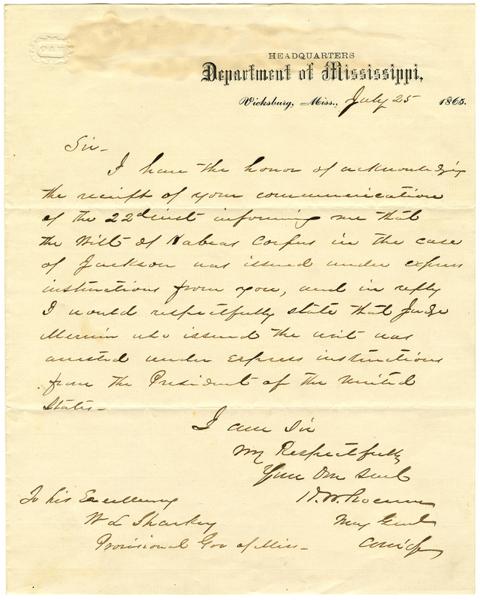 HEADQUARTERS
Department of Mississippi,
Vicksburg, Miss., July 25 1865.
Sir-
I have the honor of acknowledging
the receipt of your communication
of the 22d inst informing me that
the Writ of Habeas Corpus in the case
of Jackson was issued under express
instructions from you, and in reply
I would respectfully state that Judge
Merwin who issued the writ was
arrested under express instructions
from the President of the United
States-
I am Sir
Very Respectfully
Your Obn Servt
H. W. Slocum
Maj Genl
Comdg
To his Excellency
W L Sharkey
Provisional Gov of Miss-